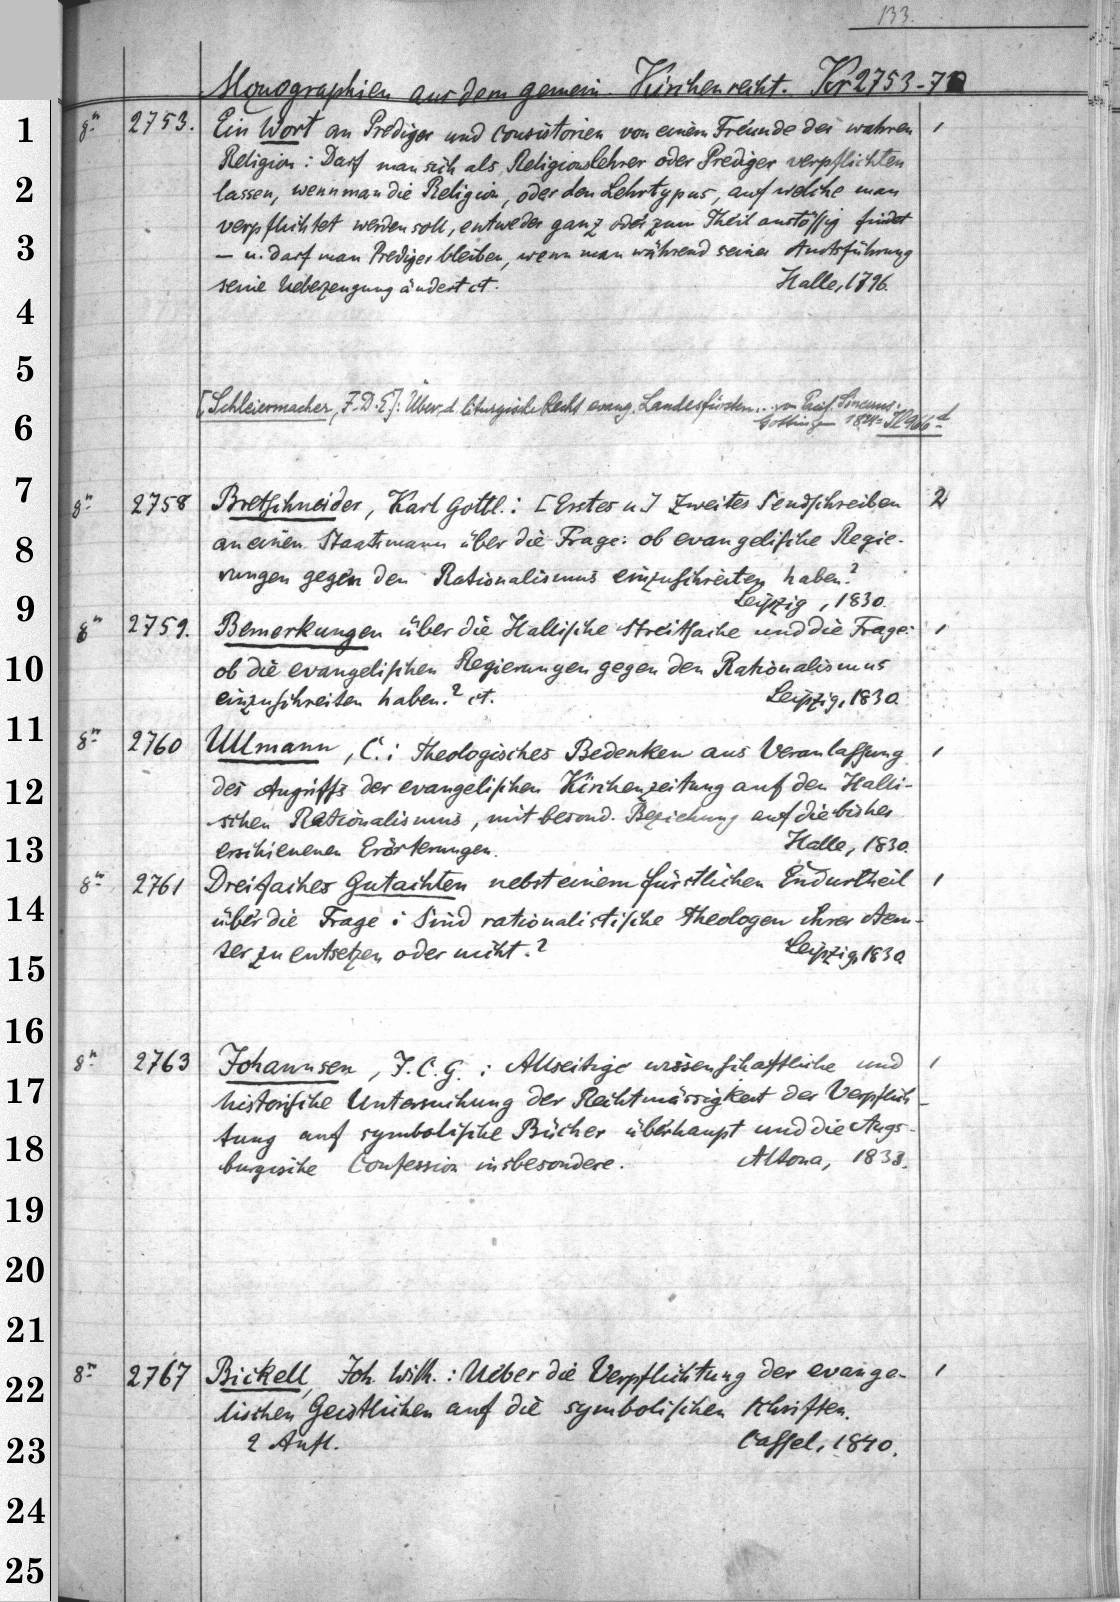 133.
Monographien aus dem gemein. Kirchenrecht. Kr 2753-71
1 8° 2753. Ein Wort an Prediger und Consistorien von einem Freunde der wahren 1
Religion: Darf man sich als Religionslehrer oder Prediger verpflichten
2 lassen, wenn man die Religion, oder den Lehrtypus, auf welche man
verpflichtet werden soll, entweder ganz oder zum Theil anstössig findet
3 — u. darf man Prediger bleiben, wenn man während seiner Amtsführung
seine Ueberzeugung ändert etc. Halle, 1796.
4
5
[Schleiermacher, F. D. E.]: Über d. liturgische Recht evang. Landesfürsten... von Pacif. Sincerus.
6 Göttingen 1824 =
7 8° 2758 Bretschneider, Karl Gottl.: [Erstes u.] Zweites Sendschreiben 2
8 an einen Staatsmann über die Frage: ob evangelische Regie-
rungen gegen den Rationalismus einzuschreiten haben?
9 Leipzig, 1830.
8° 2759. Bemerkungen über die Hallische Streitsache und die Frage: 1
10 ob die evangelischen Regierungen gegen den Rationalismus
einzuschreiten haben? etc. Leipzig, 1830.
11 8° 2760 Ullmann, C.: Theologisches Bedenken aus Veranlassung 1
12 des Angriffs der evangelischen Kirchenzeitung auf den Halli-
schen Rationalismus, mit besond. Beziehung auf die bisher
13 erschienenen Erörterungen. Halle, 1830.
8° 2761 Dreifaches Gutachten nebst einem fürstlichen Endurtheil 1
14 über die Frage: Sind rationalistische Theologen ihrer Aem-
15 ter zu entsetzen oder nicht.? Leipzig, 1830.
16
8° 2763 Johannsen, J. C. G.: Allseitige wissenschaftliche und 1
17 historische Untersuchung der Rechtmässigkeit der Verpflich-
tung auf symbolische Bücher überhaupt und die Augs-
18 burgische Confession insbesondere. Altona, 1833.
19
20
21
22 8° 2767 Bickell, Joh. Wilh.: Ueber die Verpflichtung der evange- 1
lischen Geistlichen auf die symbolischen Schriften.
23 2 Aufl. Cassel, 1840.
24
25